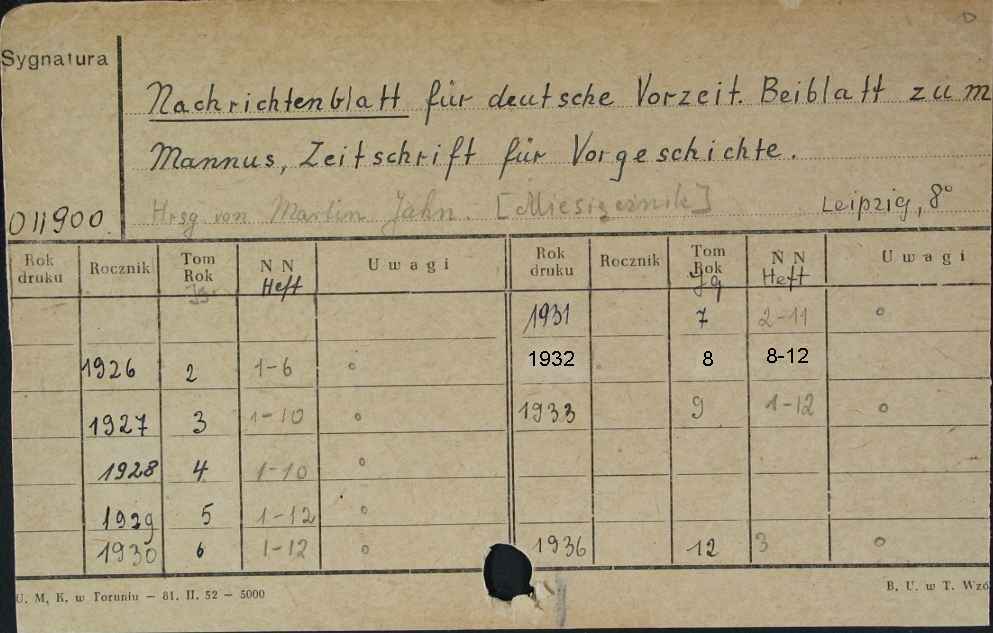 D
Sygnatura
Nachrichtenblatt für deutsche Vorzeit. Beiblatt zum
Mannus, Zeitschrift für Vorgeschichte.
011900. Hrsg von Martin Jahn. Leipzig, 8°
Rok druku Rocznik Tom Rok Jg. N N Heft Uwagi Rok druku Rocznik Tom Rok Jg N N Heft Uwagi
1931 7 2-11 °
1926 2 1-6 ° 1932 8 8-12
1927 3 1-10 ° 1933 9 1-12 °
1928 4 1-10 °
1929 5 1-12 °
1930 6 1-12 ° 1936 12 3 °
U. M. K. w Toruniu – 81. II. 52 – 5000 B. U. w T. Wzó